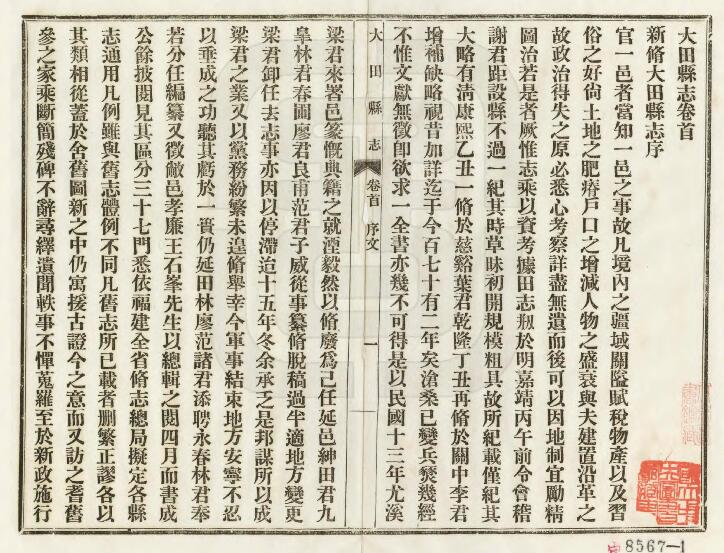 大田縣志卷首
新脩大田縣志序
官一邑者當知一邑之事故凡境內之疆域關隘賦稅物產以及習
俗之好尙土地之肥瘠戶口之增減人物之盛衰與夫建置沿革之
故政治得失之原必悉心考察詳盡無遺而後可以因地制宜勵精
圖治若是者厥惟志乘以資考據田志剏於明嘉靖丙午前令會稽
謝君距設縣不過一紀其時草昧初開規模粗具故所紀載僅紀其
大略有淸康熙乙丑一脩於慈谿葉君乾隆丁丑再脩於關中李君
增補缺略視昔加詳迄于今百七十有二年矣滄桑已變兵燹幾經
不惟文獻無徵卽欲求一全書亦幾不可得是以民國十三年尤溪
大田縣志
卷首 序文
一
梁君來署邑篆慨典籍之就湮毅然以脩廢爲己任延邑紳田君九
臯林君春圃廖君良甫范君子威從事纂脩脫稿過半適地方變更
梁君卸任去志事亦因以停滯迨十五年冬余承乏是邦謀所以成
梁君之業又以黨務紛繁未遑脩舉幸今軍事結束地方安寧不忍
以垂成之功聽其虧於一簣仍延田林廖范諸君添聘永春林君奉
若分任編纂又徵敝邑孝廉王石峯先生以總輯之閱四月而書成
公餘披閱見其區分三十七門悉依福建全省脩志總局擬定各縣
志通用凡例雖與舊志體例不同凡舊志所已載者刪繁正謬各以
其類相從蓋於舍舊圖新之中仍寓援古證今之意而又訪之耆舊
參之家乘斷簡殘碑不辭尋繹遺聞軼事不憚蒐羅至於新政施行
8567-1